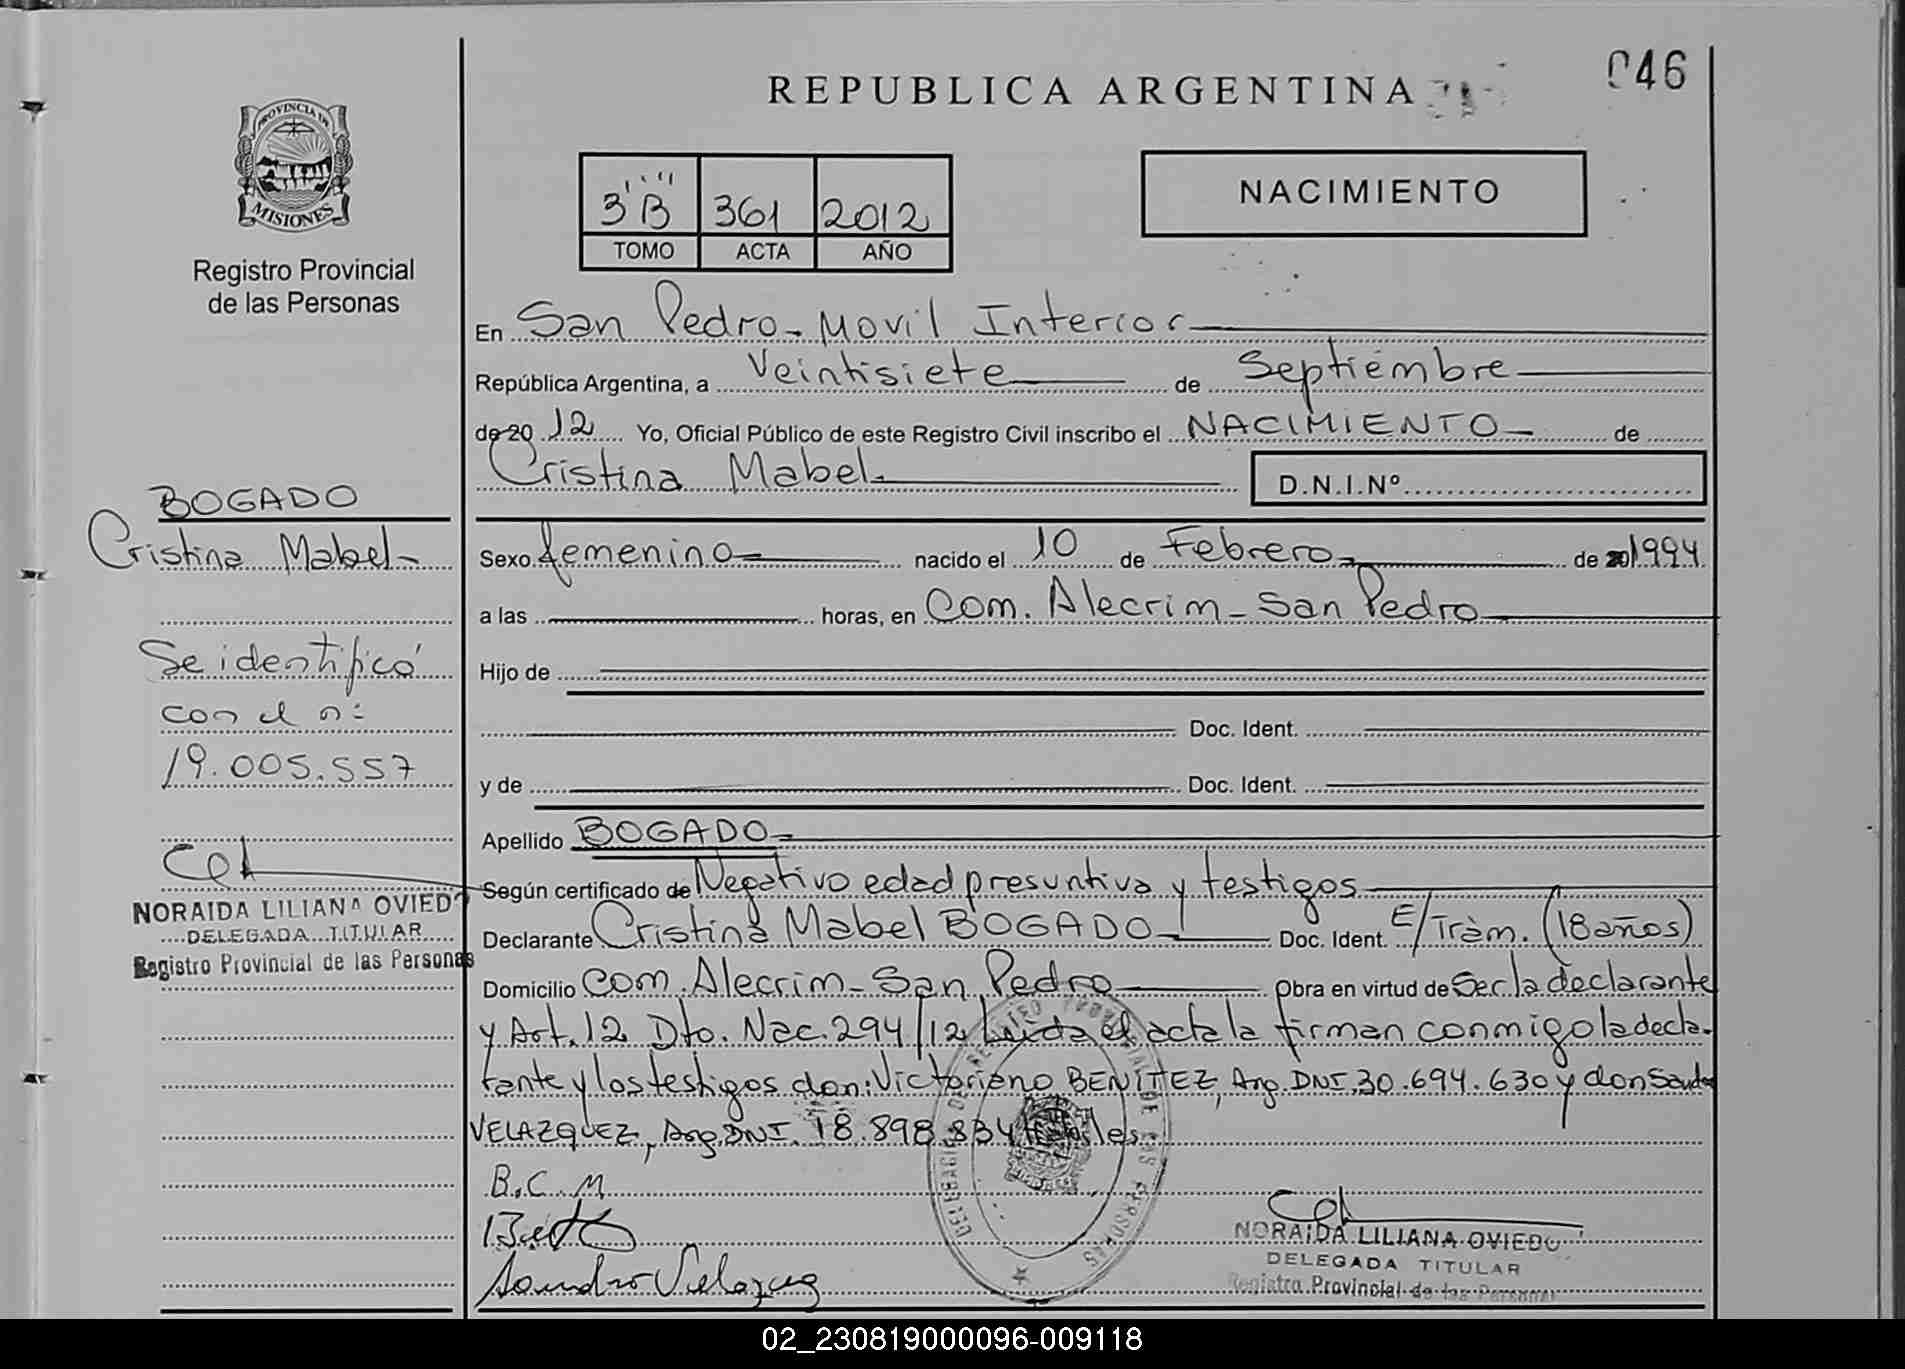 REPUBLICA ARGENTINA
046
PROVINCIA DE
MISIONES
Registro Provincial
de las Personas
3 "B" 361 2012
TOMO ACTA AÑO
NACIMIENTO
En San Pedro - Movil Interior
República Argentina, a Veintisiete de Septiembre
de 20 12 Yo, Oficial Público de este Registro Civil inscribo el NACIMIENTO - de
Cristina Mabel - D.N.I.Nº
BOGADO
Cristina Mabel -
Se identificó
con el n:
19.005.557
NORAIDA LILIANA OVIEDO
DELEGADA TITULAR
Registro Provincial de las Personas
Sexo femenino nacido el 10 de Febrero de 20 1994
a las horas, en Com. Alecrim - San Pedro
Hijo de
Doc. Ident.
y de Doc. Ident.
Apellido BOGADO -
Según certificado de Negativo edad presuntiva y testigos
Declarante Cristina Mabel BOGADO - Doc. Ident. E/Trám. (18 años)
Domicilio Com. Alecrim - San Pedro Obra en virtud de Ser la declarante
y Art. 12 Dto. Nac. 294/12 Leida el acta la firman conmigo la decla-
rante y los testigos don: Victoriano BENITEZ, Arg. DNI. 30.694.630 y don Sandro
VELAZQUEZ, Arg. DNI. 18.898.834
B.C.M
Sandro Velazquez
DELEGACION DE REGISTRO PROVINCIAL DE LAS PERSONAS
NORAIDA LILIANA OVIEDO
DELEGADA TITULAR
Registro Provincial de las Personas
02_230819000096-009118